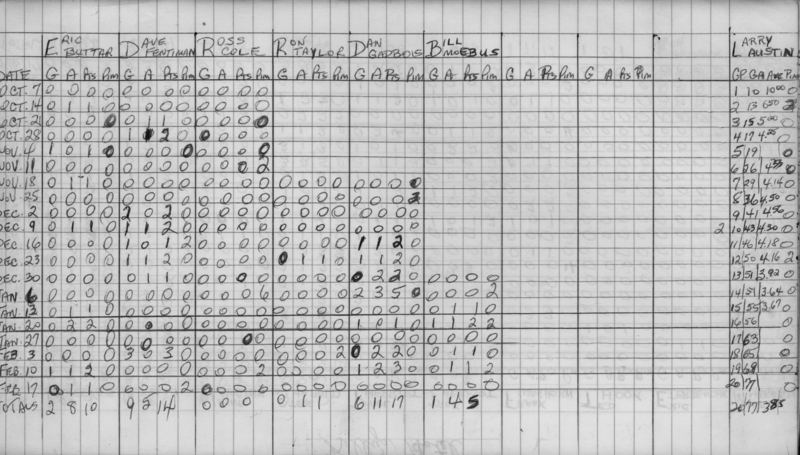 ERIC DAVE ROSS RON DAN BILL LARRY
BUTTAR FENTIMAN COLE TAYLOR GADBOIS MOEBUS AUSTIN
DATE G A Pts Pim G A Pts Pim G A Pts Pim G A Pts Pim G A Pts Pim G A Pts Pim G A Pts Pim G A Pts Pim GP GA AVE Pim
OCT. 7 0 0 0 0 0 0 0 0 0 0 1 10 10.00 0
OCT. 14 0 1 1 0 0 0 0 0 0 0 0 0 2 13 6.50
OCT. 21 0 0 0 0 0 1 1 0 0 0 0 0 3 15 5.00 0
OCT. 28 0 0 0 0 1 2 0 0 0 0 0 4 17 4.25 0
NOV. 4 1 0 1 0 0 0 0 0 0 0 0 0 5 19 0
NOV. 11 0 0 0 0 0 0 0 0 0 0 0 2 6 26 4.33 0
NOV. 18 0 1 1 0 0 0 0 0 0 0 0 0 0 0 0 0 0 0 0 0 7 29 4.14 0
NOV. 25 0 0 0 0 0 0 0 0 0 0 0 0 0 0 0 0 0 0 0 8 36 4.50 0
DEC. 2 0 0 0 0 2 0 2 0 0 0 0 0 0 0 0 0 0 0 0 0 9 41 4.56 0
DEC. 9 0 1 1 0 1 1 2 0 0 0 0 0 0 0 0 0 0 0 0 0 2 10 43 4.30 0
DEC. 16 0 0 0 0 1 0 1 2 0 0 0 0 0 0 0 0 1 1 2 0 11 46 4.18 0
DEC. 23 0 0 0 0 1 1 2 0 0 0 0 0 0 1 1 0 1 1 2 0 12 50 4.16 2
DEC. 30 0 0 0 0 0 1 1 0 0 0 0 0 0 0 0 0 0 2 2 0 0 0 0 0 13 51 3.92 0
JAN. 6 0 0 0 0 0 0 0 0 0 0 0 6 0 0 0 0 2 3 5 0 0 0 0 2 14 51 3.64 0
JAN. 13 0 1 1 0 0 0 0 0 0 0 0 0 0 0 0 0 0 0 0 0 0 1 1 0 15 55 3.67 0
JAN. 20 0 2 2 0 0 0 0 0 0 0 0 0 0 0 0 0 1 0 1 0 1 1 2 2 16 56 0
JAN. 27 0 0 0 0 0 0 0 0 0 0 0 0 0 0 0 0 0 0 0 0 0 0 0 0 17 63 0
FEB. 3 0 0 0 0 3 0 3 0 0 0 0 0 0 0 0 2 0 2 2 0 0 1 1 0 18 65 0
FEB. 10 1 1 2 0 0 0 0 0 0 0 0 2 0 0 0 0 1 2 3 0 0 1 1 2 19 68 0
FEB. 17 0 1 1 0 0 0 0 2 0 0 0 0 0 0 0 0 0 0 0 0 0 0 0 0 20 77 0
TOTALS 2 8 10 9 5 14 0 0 0 0 1 1 6 11 17 1 4 5 20 77 3.85